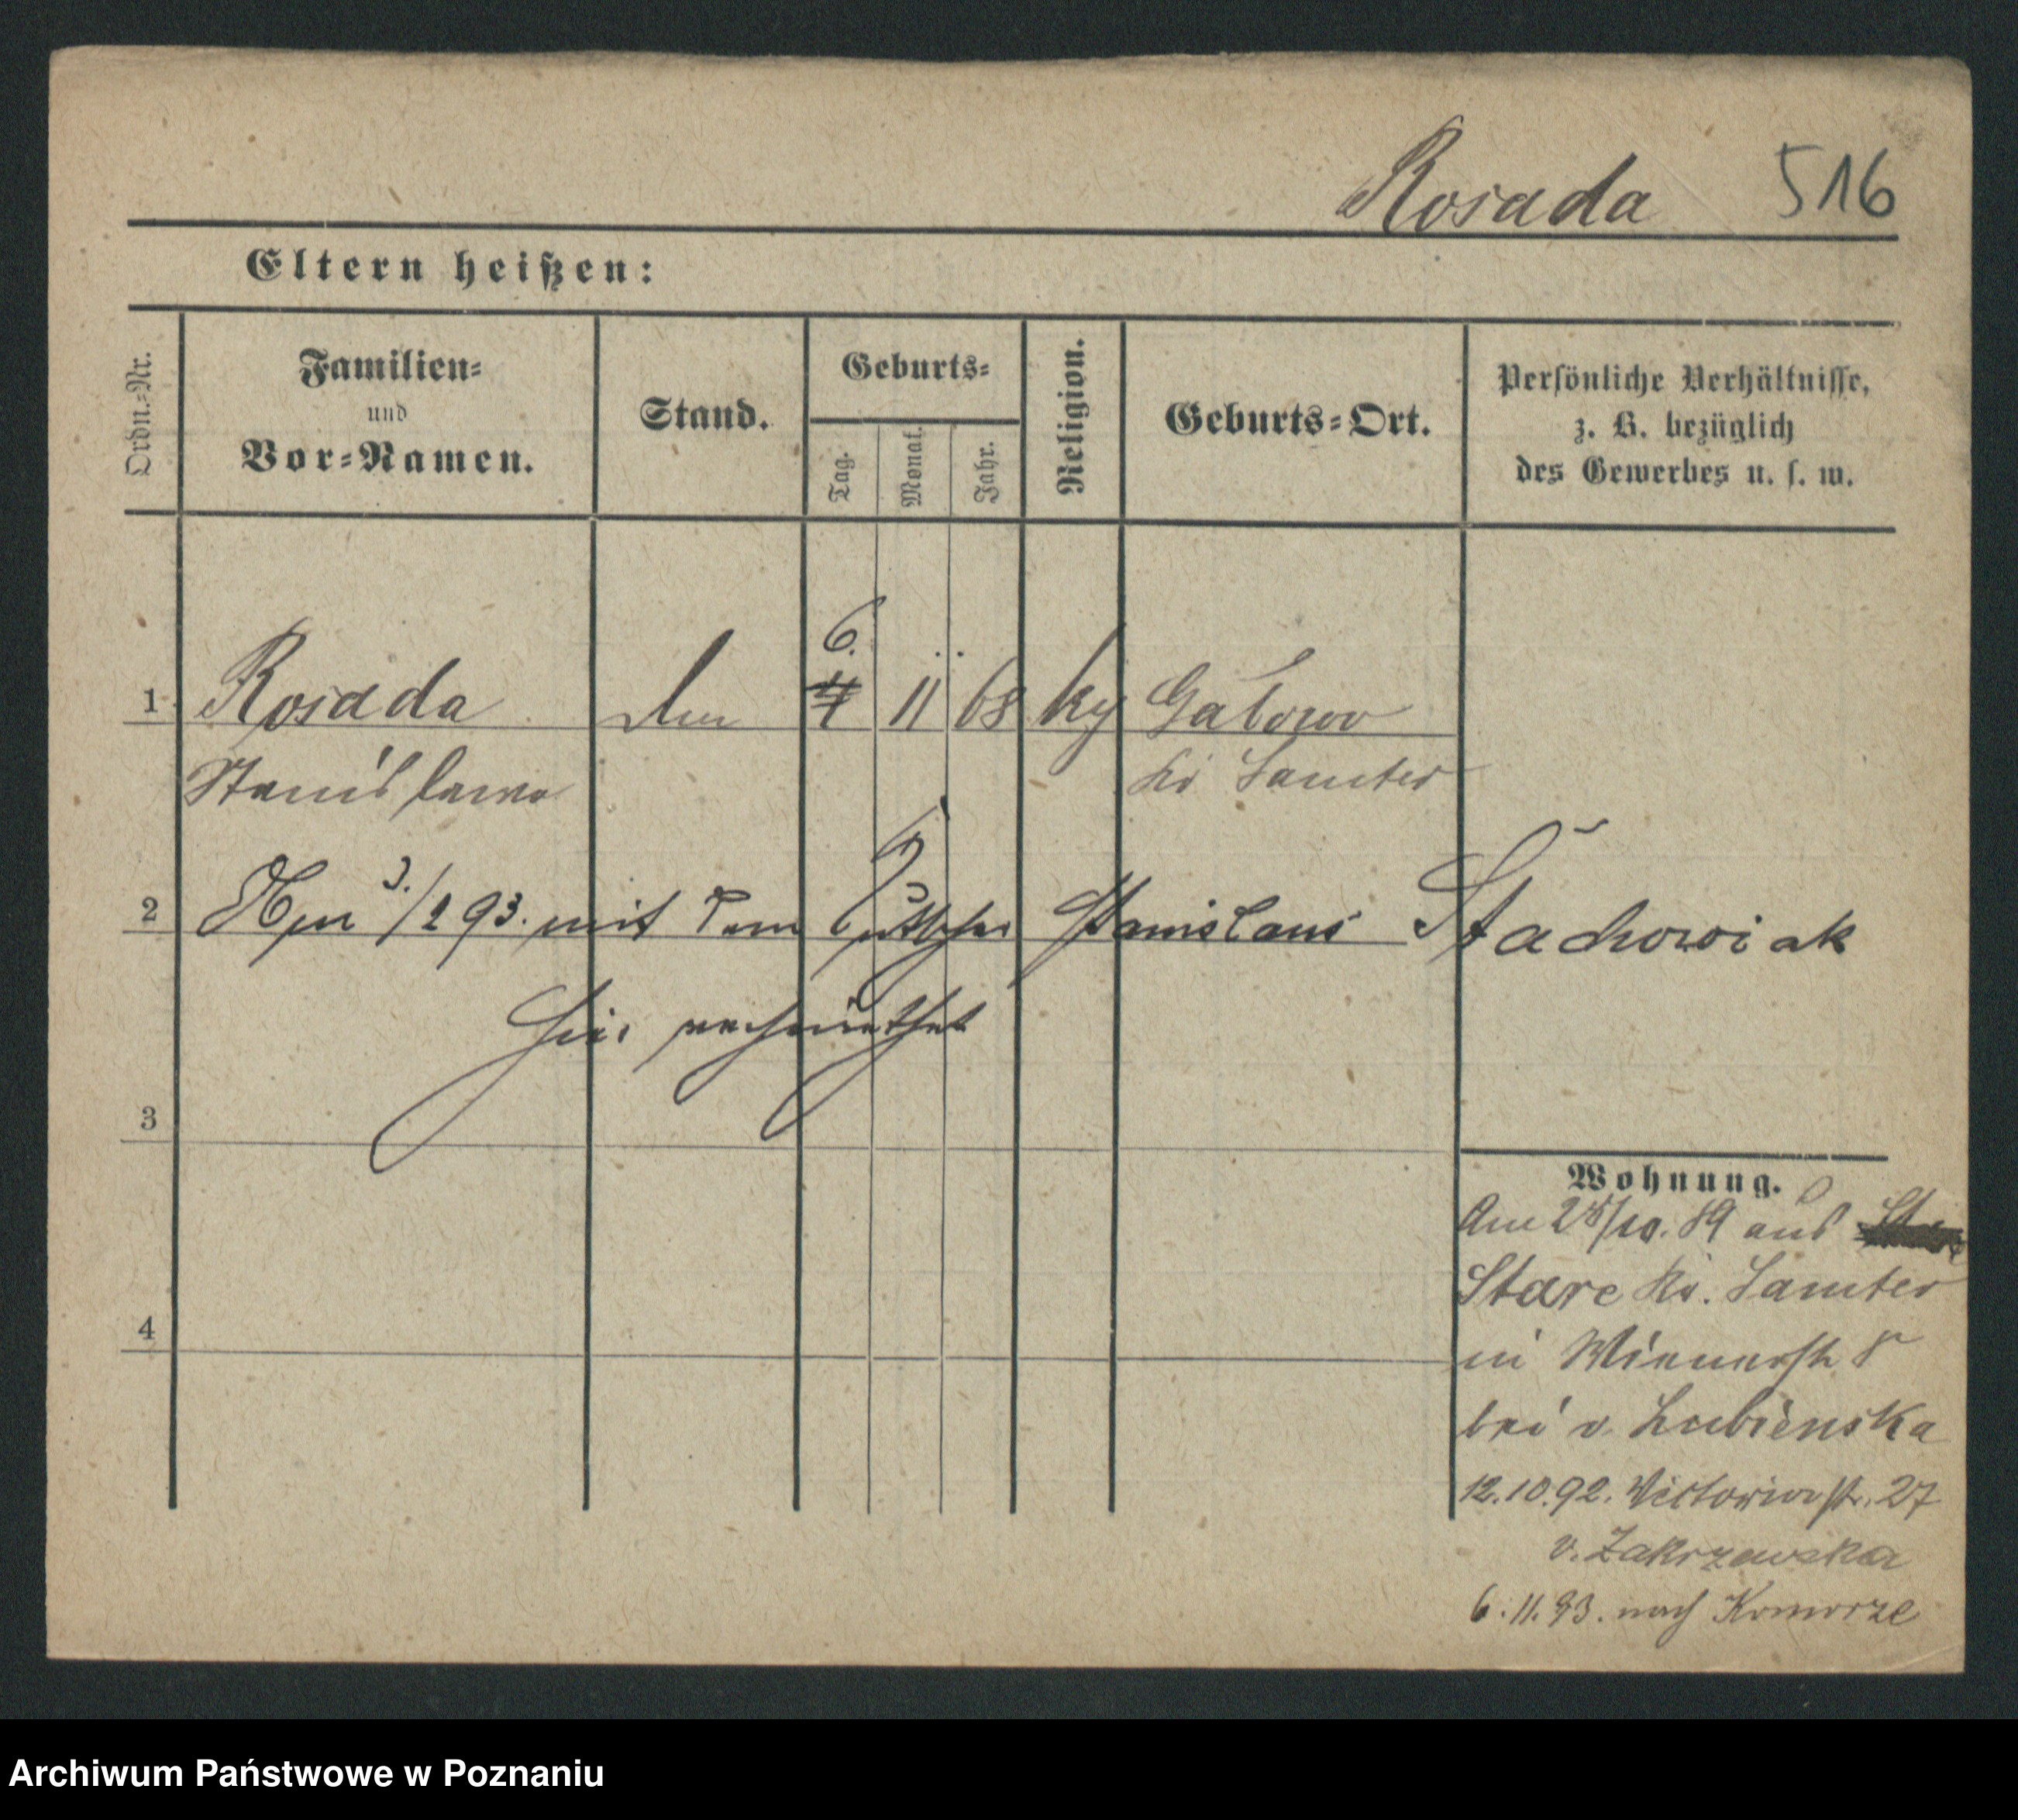 Rosada 516
Eltern heißen:
Ordn.-Nr.
Familien-
und
Vor-Namen.
Stand.
Geburts-
Tag.
Monat.
Jahr.
Religion.
Geburts-Ort.
Persönliche Verhältnisse,
z. B. bezüglich
des Gewerbes u. s. w.
6.
1 Rosada 4 11 68 Ka Gałowo
Stanisława Kr Samter
2 3./2 93. mit dem Stanislaus Stachowiak
hier verheirathet
3
Wohnung.
Am 25/10. 89 aus
Stare Kr. Samter
in Wienerstr 8
bei v. Lubienska
12.10.92. Victoriastr. 27
v. Zakrzewska
6.11.93. nach Komorze
4
Archiwum Państwowe w Poznaniu